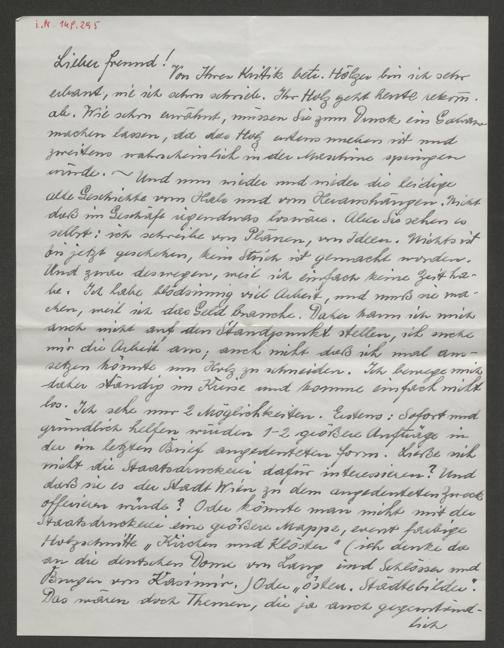 I.N. 149.295
Lieber Freund!
Von Ihrer Kritik betr. Hölzer bin ich sehr
erbaut, wie ich schon schrieb. Ihr Holz geht heute rekom.
ab. Wie schon erwähnt, müssen Sie zum Druck ein Galvano
machen lassen, da das Holz erstens uneben ist und
zweitens wahrscheinlich in der Maschine springen
würde. ~ Und nun wieder und wieder die leidige
alte Geschichte vom Hals und vom Heraushängen. Nicht
daß im Geschäft irgendwas los wäre. Aber Sie sehen es
selbst: ich schreibe von Plänen, von Ideen. Nichts ist
bis jetzt geschehen, kein Strich ist gemacht worden.
Und zwar deswegen, weil ich einfach keine Zeit ha-
be. Ich habe blödsinnig viel Arbeit, und muß sie ma-
chen, weil ich das Geld brauche. Daher kann ich mich
auch nicht auf den Standpunkt stellen, ich suche
mir die Arbeit aus; auch nicht daß ich mal aus-
setzen könnte um Holz zu schneiden. Ich bewege mich
daher ständig im Kreise und komme einfach nicht
los. Ich sehe nur 2 Möglichkeiten. Erstens: Sofort und
gründlich helfen würden 1-2 größere Aufträge in
der im letzten Brief angedeuteten Form. Ließe sich
nicht die Staatsdruckerei dafür interessieren? Und
daß sie es der Stadt Wien zu dem angedeuteten Zweck
offerieren würde? Oder könnte man nicht mit der
Staatsdruckerei eine größere Mappe, event. farbige
Holzschnitte „Kirchen und Klöster" (ich denke da
an die deutschen Dome von Lang und Schlösser und
Burgen von Kasimir.) Oder „österr. Städtebilder".
Das wären doch Themen, die ja auch gegenständ-
lich